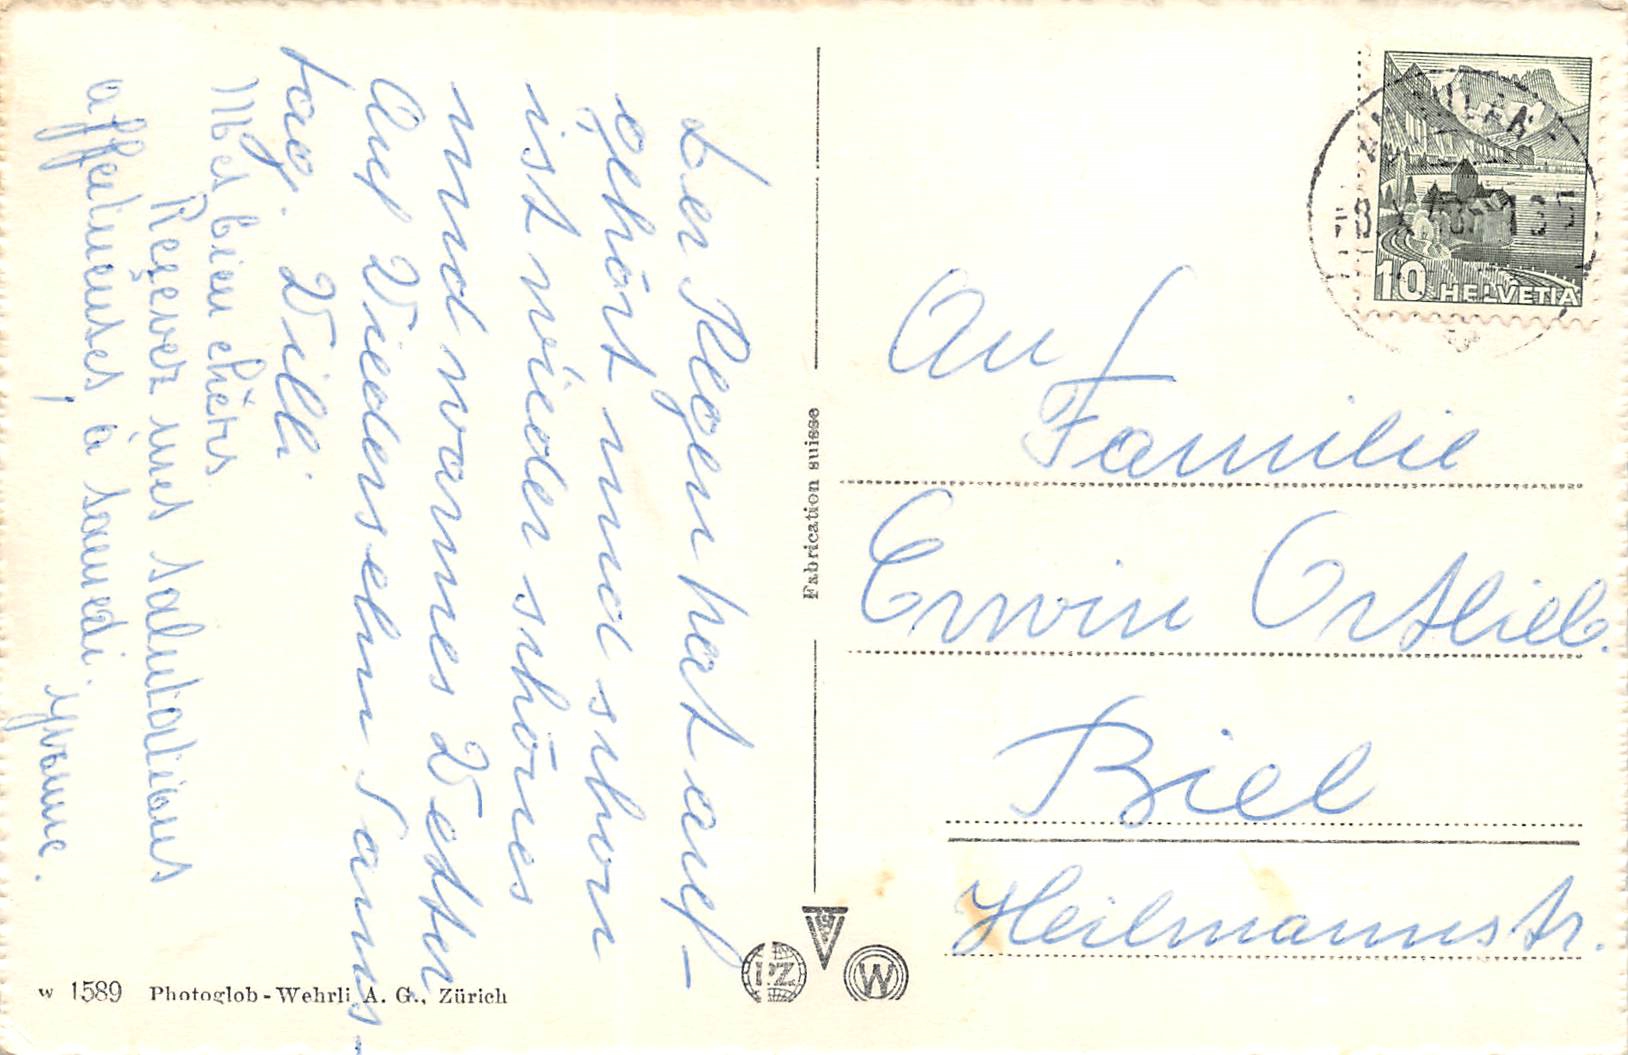 Der Regen hat auf-
gehört und schon
ist wieder schönes
und warmes Wetter
Auf Wiedersehn Sams-
tag. Willi
Mes bien chers
Reçevez mes salutations
affectueuses, à samedi.
Yvonne.
Fabrication suisse
10 HELVETIA
An
Familie
Erwin Ortlieb.
Biel
Heilmannstr.
PZ
W
w 1589 Photoglob-Wehrli A. G., Zürich